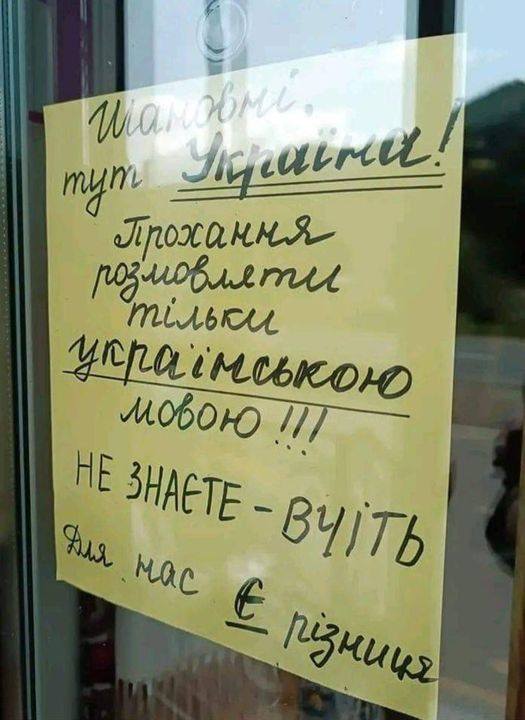 Шановні,
тут Україна!
Прохання
розмовляти
тільки
українською
мовою!!!
НЕ ЗНАЄТЕ - ВЧІТЬ
Для нас Є різниця